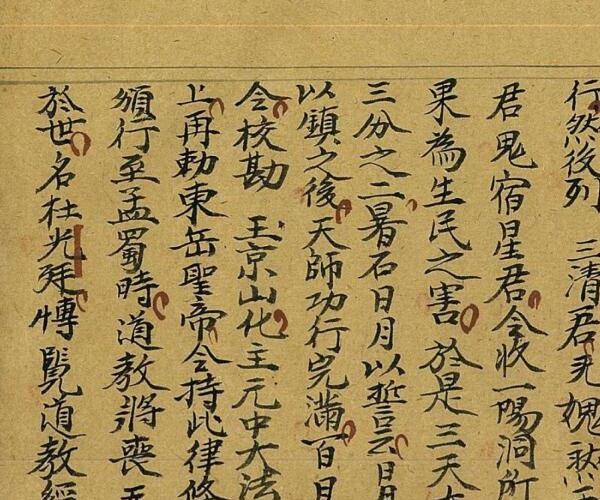 行然後列　三清君
君鬼宿星君令收一暘洞所
果為生民之害於是三天
三分之二暑石日月以誓云日月
以鎮之後天師功行完滿百日
令校勘　玉京山化主元中大法
上再勅東岳聖帝令持此律修
頒行至孟蜀時道教將喪
於世名杜光廷愽覧道教經